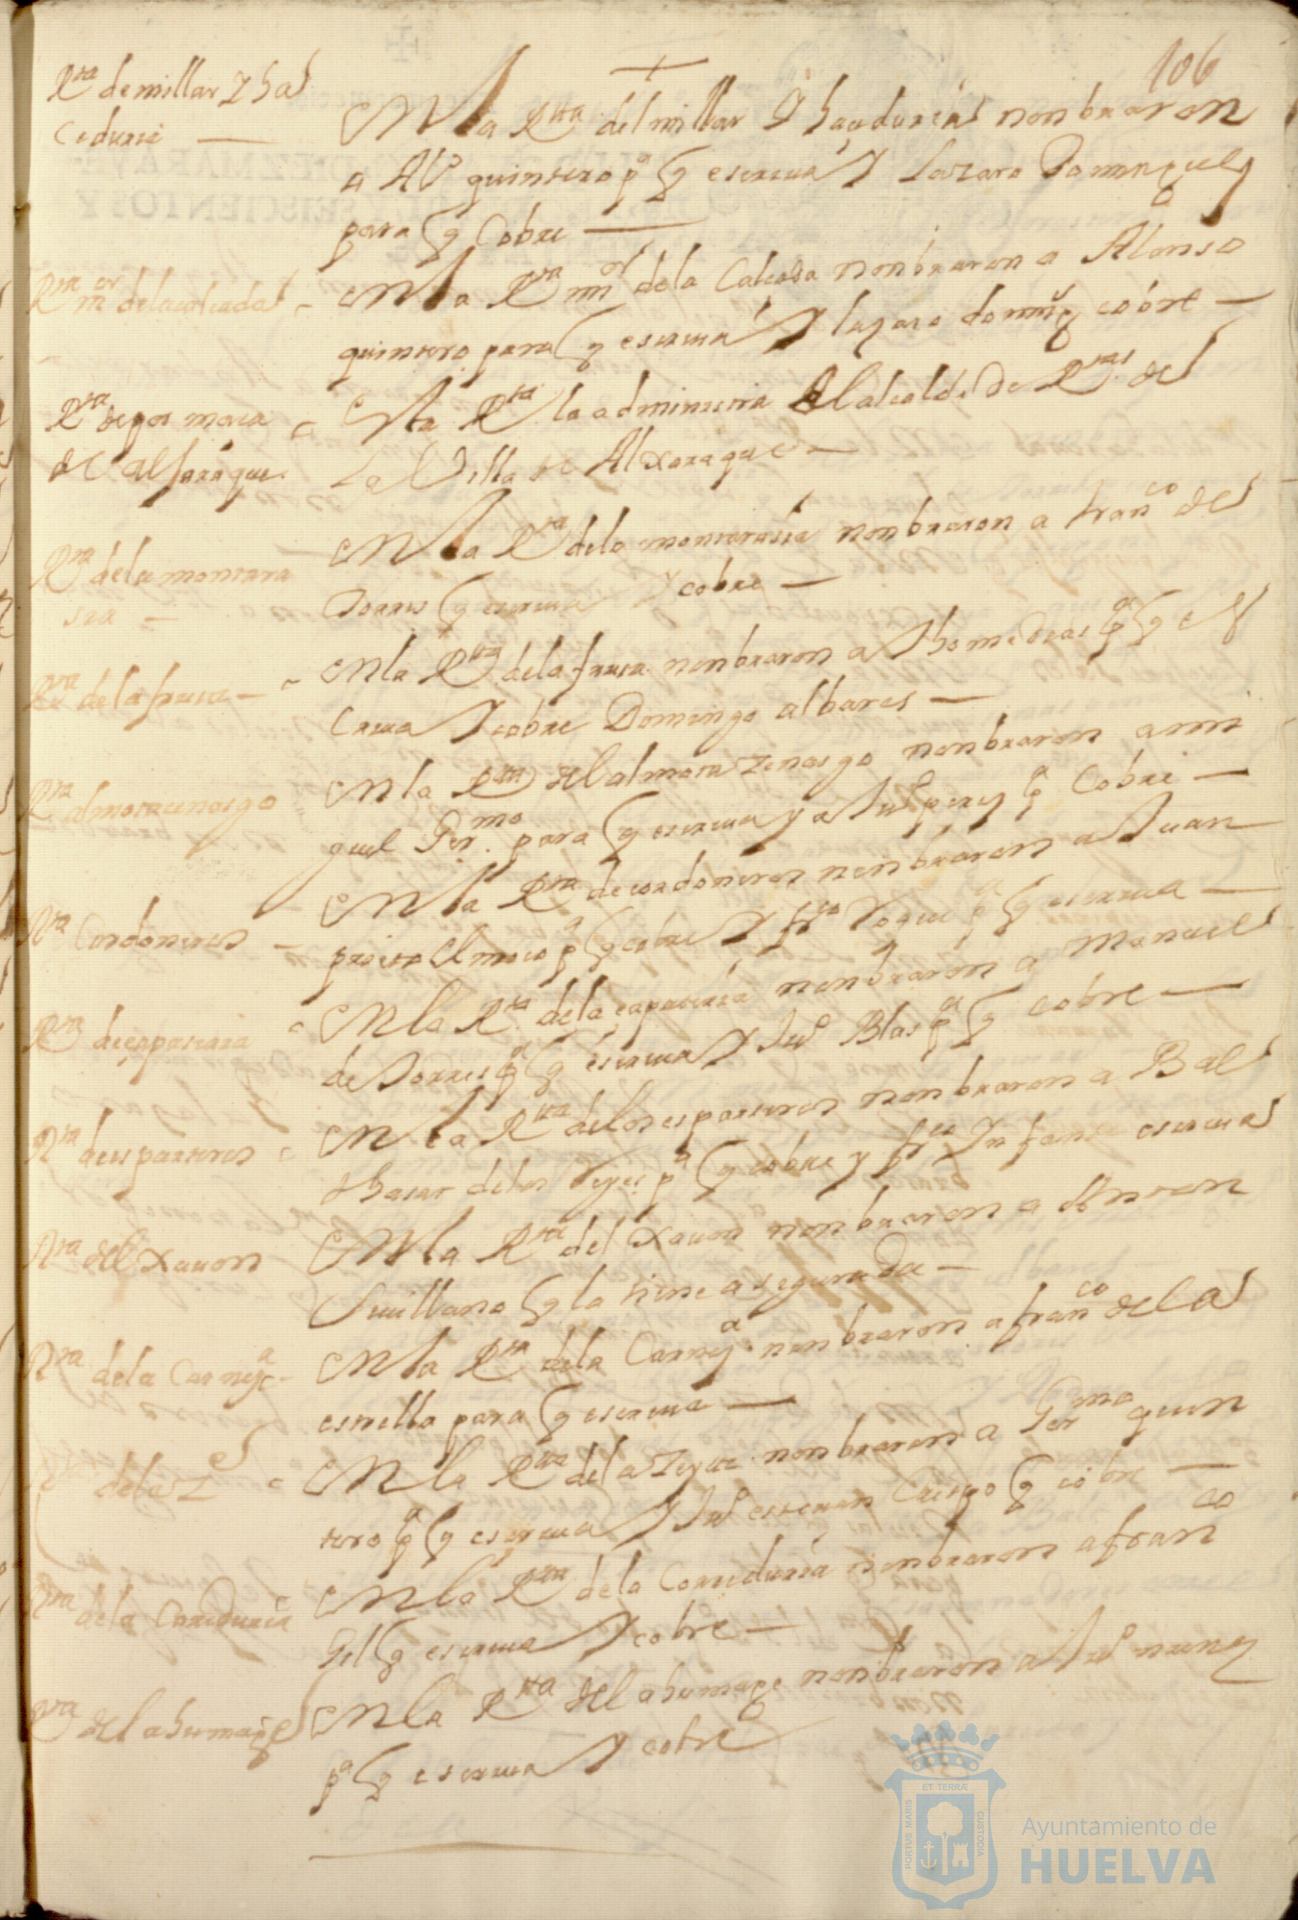 +
106
Rta de millar y ha
ceduria
En la Rta del millar y haceduria nonbraron
a Alº quintero pª q escriua y Lazaro Domingues
para q Cobre
Rta mor de la calcada
En la Rta mor de la Calcada nonbraron a Alonso
quintero para q escriua y lazaro doming cobre
Rta de por maca
de alfaraque
Esta Rta la administra el alcalde de Rtas de
La Villa de Alxaraque
Rta de la montara
sia
En la Rta de la montarasia nonbraron a franco de
Torres q escriua y cobre
Rta de la fruta
En la Rta de la fruta nonbraron a thome dias pª q es
criua y cobre Domingo albares
Rta almotacenasgo
En la Rta del almotazenasgo nonbraron a mi
guel Germo para q escriua y a Juº perez pª Cobre
Rta Cordoneros
En la Rta de cordoneros nonbraron a Juan
prieto el moco pª q cobre y frco Roque pª q escriua
Rta de capateria
En la Rta de la capateria nonbraron a Manuel
de Torres pª q escriua y Juº Blas pª q cobre
Rta de esparteros
En la Rta de los esparteros nonbraron a Bal
thasar de los Reyes pª q cobre y frco Infante escriua
Rta del Xauon
En la Rta del Xauon nonbraron a Juan
Seuillano q la tiene asegurada
Rta de la Carneª
En la Rta de la Carneª nonbraron a franco de la
estrella para q escriua
de la
En la Rta de la nonbraron a Germo quin
tero pª q escriua y Juº esteuan Crespo q cobre
Rta de la Correduria
En la Rta de la Correduria nonbraron a franco
Gil q escriua y cobre
Rta del ahumaje
En la Rta del ahumaje nonbraron a Juº nunez
pª q escriua y cobre
PORTUS MARIS ET TERRÆ CUSTODIA
Ayuntamiento de
HUELVA